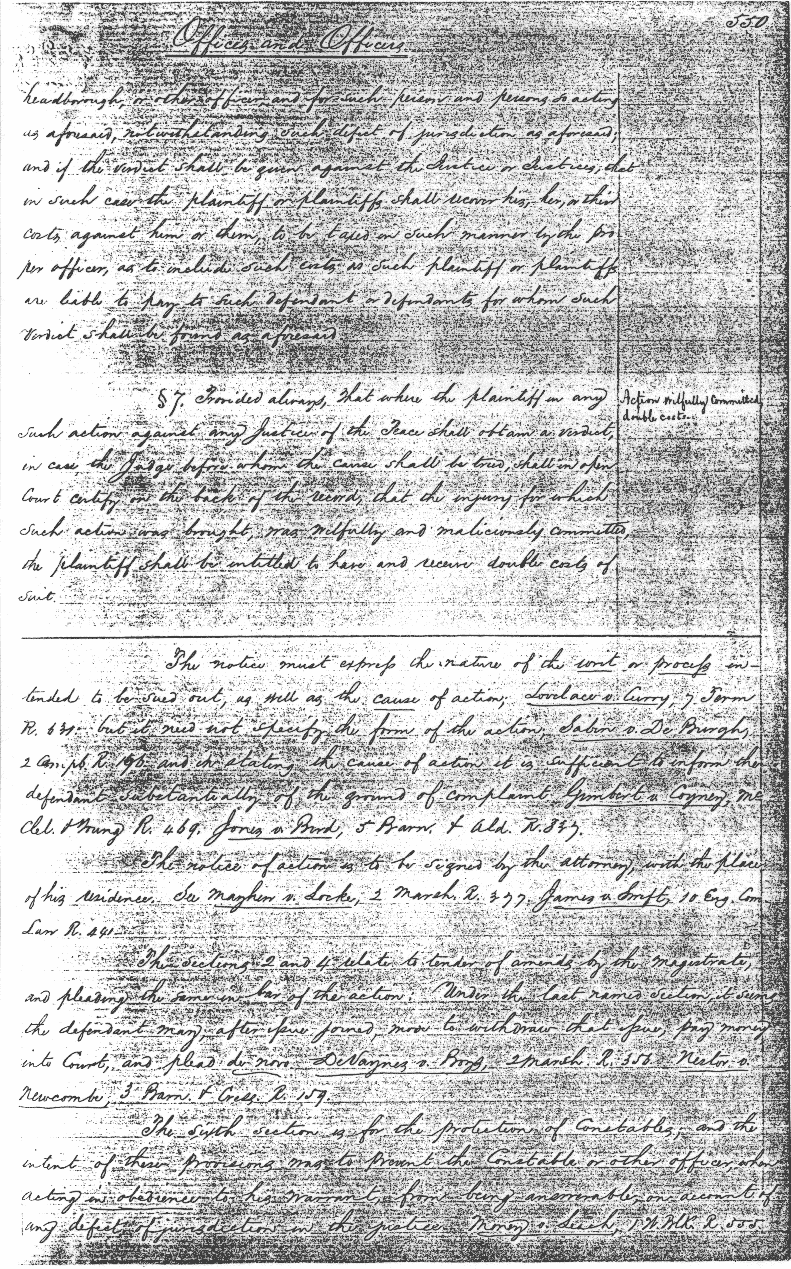 550
Offices and Officers
headborough, or other officer, and for such person and persons so acting
as aforesaid, notwithstanding such defect of jurisdiction as aforesaid;
and if the verdict shall be given against the Justice or Justices, that
in such case the plaintiff or plaintiffs shall recover his, her, or their
costs against him or them, to be taxed in such manner by the pro
per officer, as to include such costs as such plaintiff or plaintiffs
are liable to pay to such defendant or defendants for whom such
verdict shall be found as aforesaid
§ 7. Provided always, that where the plaintiff in any
such action against any Justice of the Peace shall obtain a verdict,
in case the Judge before whom the cause shall be tried, shall in open
Court certify on the back of the record, that the injury for which
such action was brought, was wilfully and maliciously committed,
the plaintiff shall be intitled to have and receive double costs of
suit.
Action wilfully committed
double costs.
The notice must express the nature of the writ or process in-
tended to be sued out, as well as the cause of action; Lovelace v. Curry, 7 Term
R. 631. but it need not specify the form of the action; Sabin v. De Burgh,
2 Campb. R. 196. and in stating the cause of action it is sufficient to inform the
defendant substantially of the ground of complaint Gimbert v. Coyney, Mc
Clel. & Young R. 469. Jones v. Bird, 5 Barn. & Ald. R. 837.
The notice of action is to be signed by the attorney, with the place
of his residence. See Mayhew v. Locke, 2 Marsh. R. 377. James v. Swift, 10 Eng. Com.
Law R. 441.
The sections 2 and 4 relate to tender of amends by the magistrate,
and pleading the same in bar of the action: Under the last named section, it seems
the defendant may, after issue joined, move to withdraw that issue, pay money
into Court, and plead de novo. DeVaynes v. Boys, 2 Marsh. R. 356. Nestor v.
Newcombe, 3 Barn. & Cress. R. 159.
The sixth section is for the protection of Constables, and the
intent of these provisions was to prevent the Constable or other officer, when
acting in obedience to his warrant, from being answerable, on account of
any defect of jurisdiction in the justice. Money v. Leach, 1 W. Blk. R. 555.